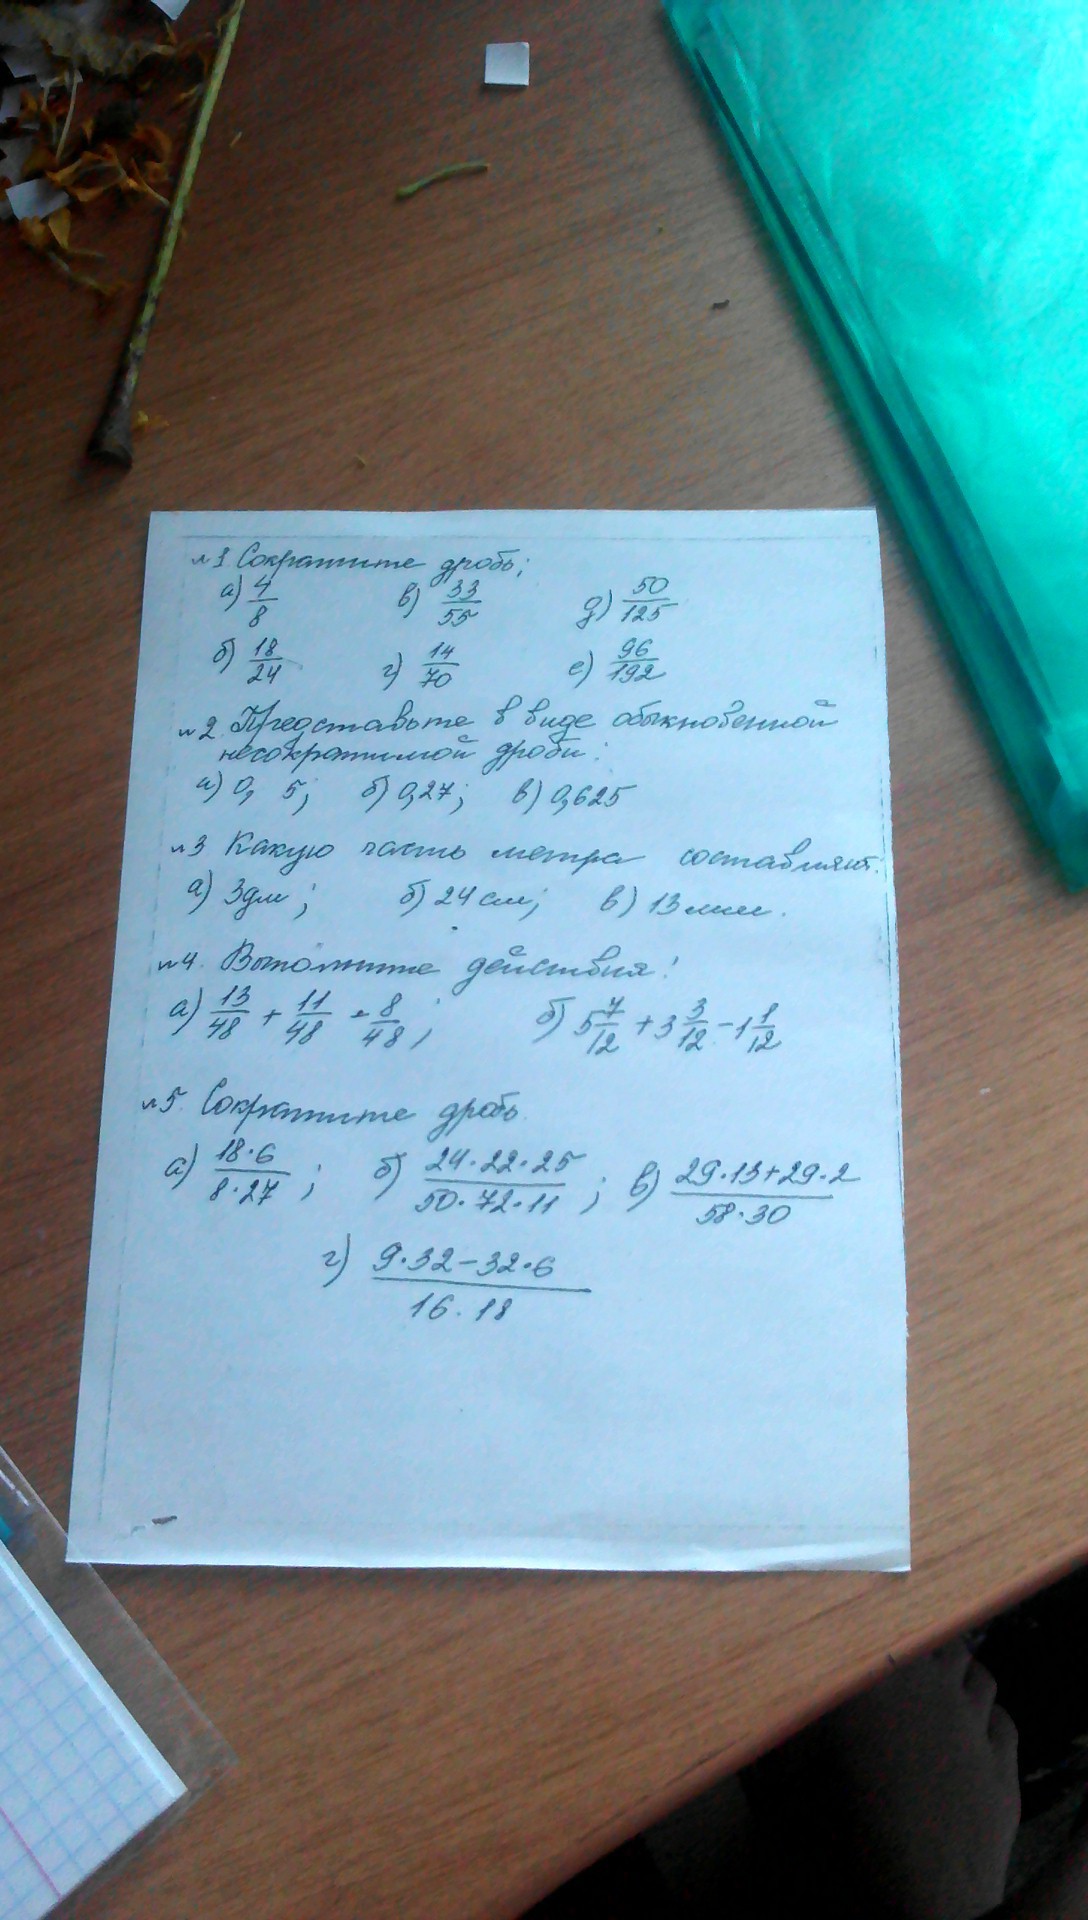 №1 Сократите дробь;
а) 4/8 в) 33/55 д) 50/125
б) 18/24 г) 14/70 е) 96/192
№2. Представьте в виде обыкновенной
несократимой дроби:
а) 0, 5; б) 0,27; в) 0,625
№3 Какую часть метра составляют:
а) 3дм; б) 24 см; в) 13 мм.
№4. Выполните действия:
а) 13/48 + 11/48 - 8/48; б) 5 7/12 + 3 3/12 - 1 1/12
№5. Сократите дробь.
а) 18·6/8·27; б) 24·22·25/50·72·11; в) 29·13+29·2/58·30
г) 9·32-32·6/16·18